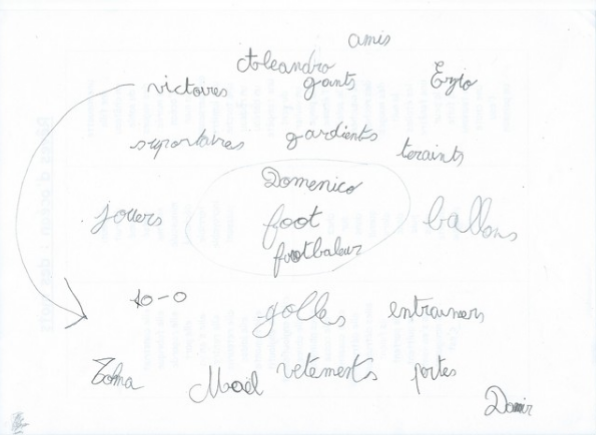 amis
Aleandro
victoires gants Ezio
suportaires gardients teraints
Domenico
jouers foot ballons
footbaleur
10-0 golles entrainers
Maël vetements portes
Damir